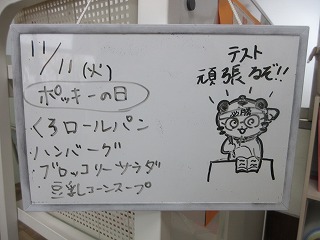 11/11(火)
ポッキーの日
・くろロールパン
・ハンバーグ
・ブロッコリーサラダ
・豆乳コーンスープ
テスト
頑張るぞ!!
必勝